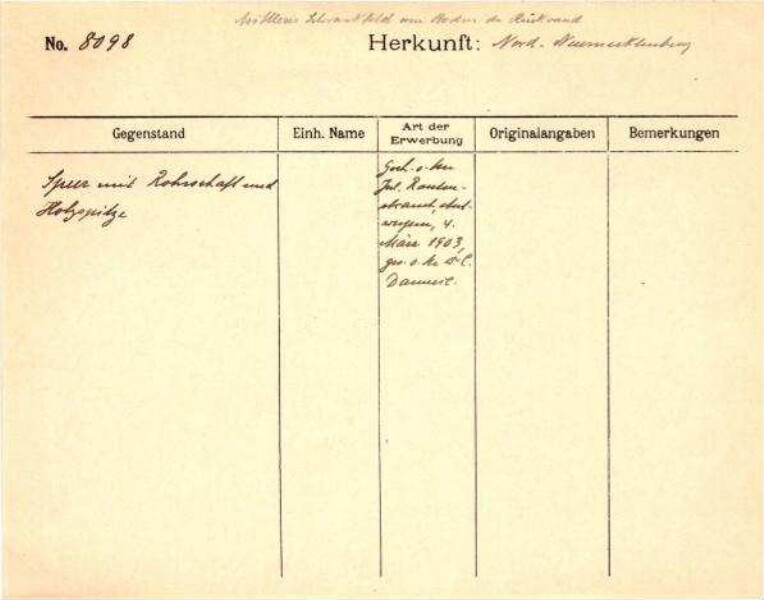 Mittleres Schrankfeld am Boden der Rückwand
No. 8098 Herkunft: Nord-Neumecklenburg
Gegenstand Einh. Name Art der Erwerbung Originalangaben Bemerkungen
Speer mit Rohrschaft und
Holzspitze
Gesch. v. Hrn
Jul. Rauten-
strauch, Ant-
werpen, 4.
März 1903,
ges. v. Hr Dr C.
Danneil.